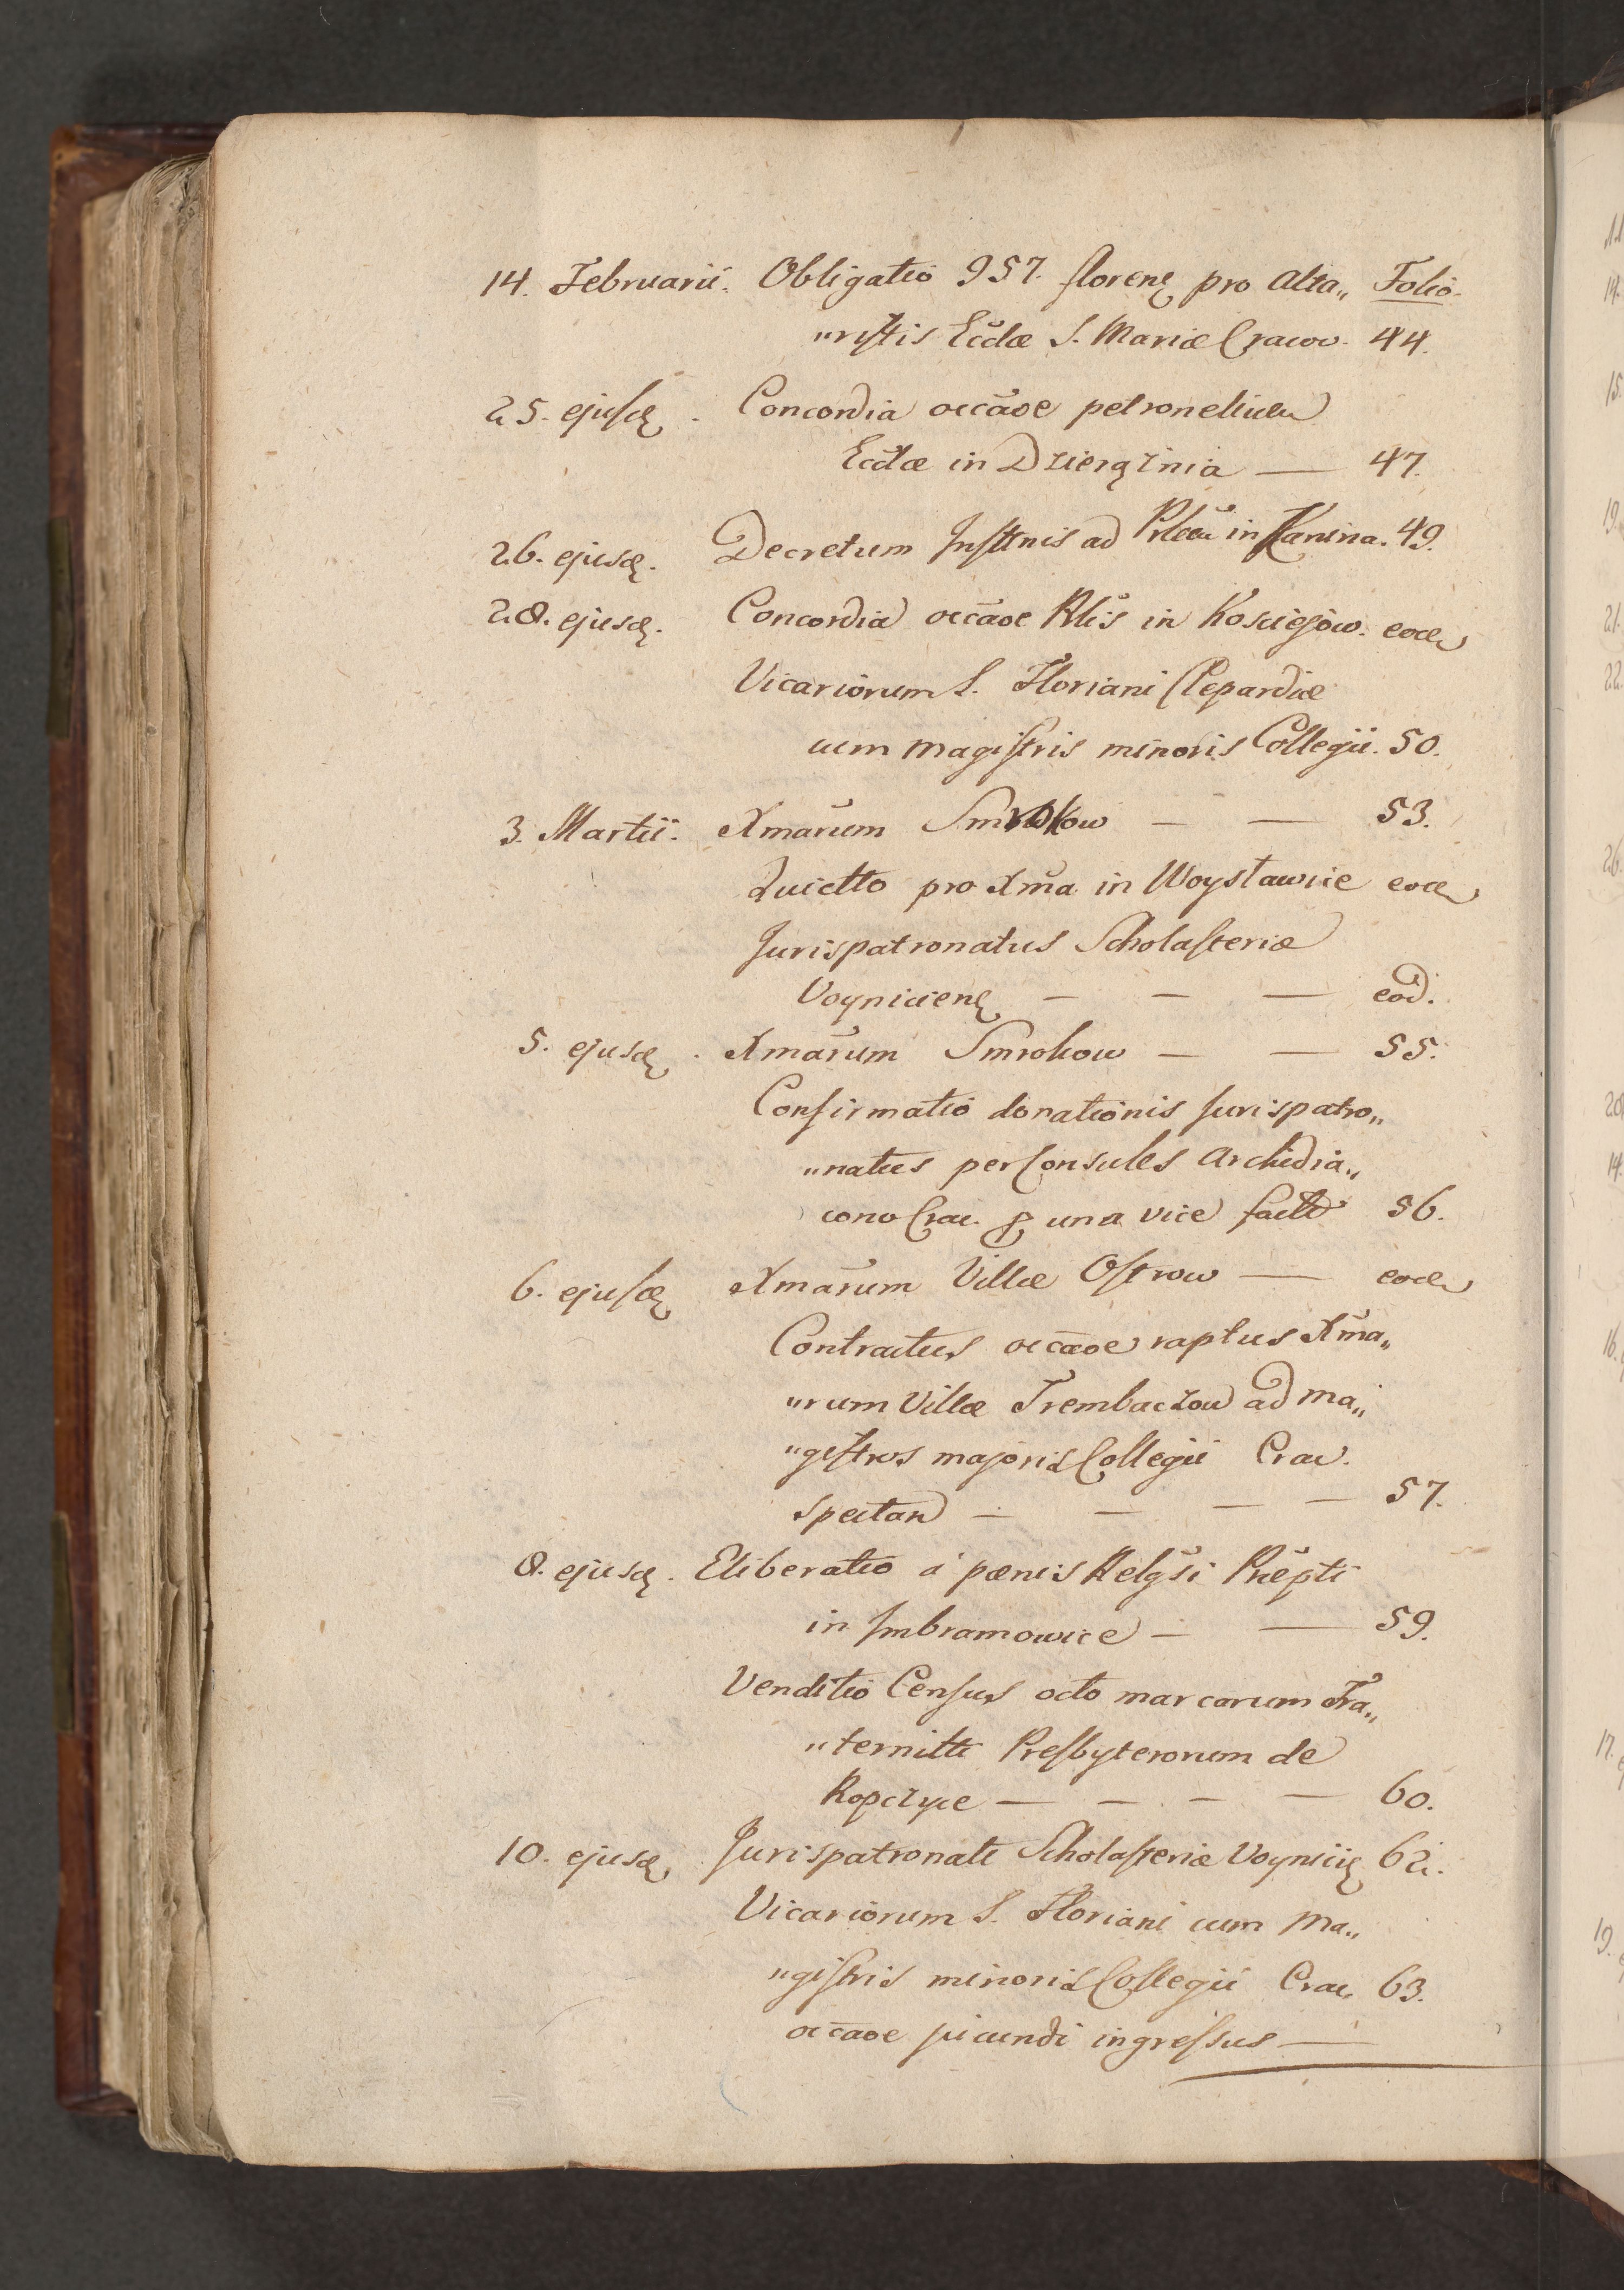 14. Februarii. Obligatio 957. florenę pro Alta„ Folio.
„ristis Eccłae S. Mariæ Cracov. 44.
25. ejusdę. Concordia occāōe petronelium
Ecclæ in Dzierążnia — 47.
26. ejusdę. Decretum Insttnis ad Plebū in Kanina. 49.
28. ejusdę. Concordia occāōe Plis in Kosciejow. eodę
Vicariorum S. Floriani Clepardiæ
cum magistris minoris Collegii. 50.
3. Martii. Xmarūm Smrokow — — 53.
Quietto pro Xm̄a in Woysławice eodę
Jurispatronatus Scholasteriæ
Voynicienę — — — eod.
5. ejusdę. Xmarūm Smrokow — — 55.
Confirmatio donationis Jurispatro„
„natus per Consules Archidia„
cono Crac. ꝓ una vice factæ 56.
6. ejusdę Xmarūm Villæ Ostrow — eodę
Contractus occāōe raptus Xm̄a„
„rum Villæ Trembaczow ad Ma„
„gistros majoris Collegii Crac.
spectan — — — — 57.
8. ejusdę. Eliberatio á pænis Relgsi Pnepti
in Imbramowice — — 59.
Venditio Census octo marcarum Fra„
„ternitti Presbyterorum de
Ropczyce — — — — 60.
10. ejusdę. Jurispatronati Scholasteriæ Voynicię 62.
Vicariorum S. Floriani cum Ma„
„gistris minoris Collegii Crac. 63.
occāōe jucundi ingressus —